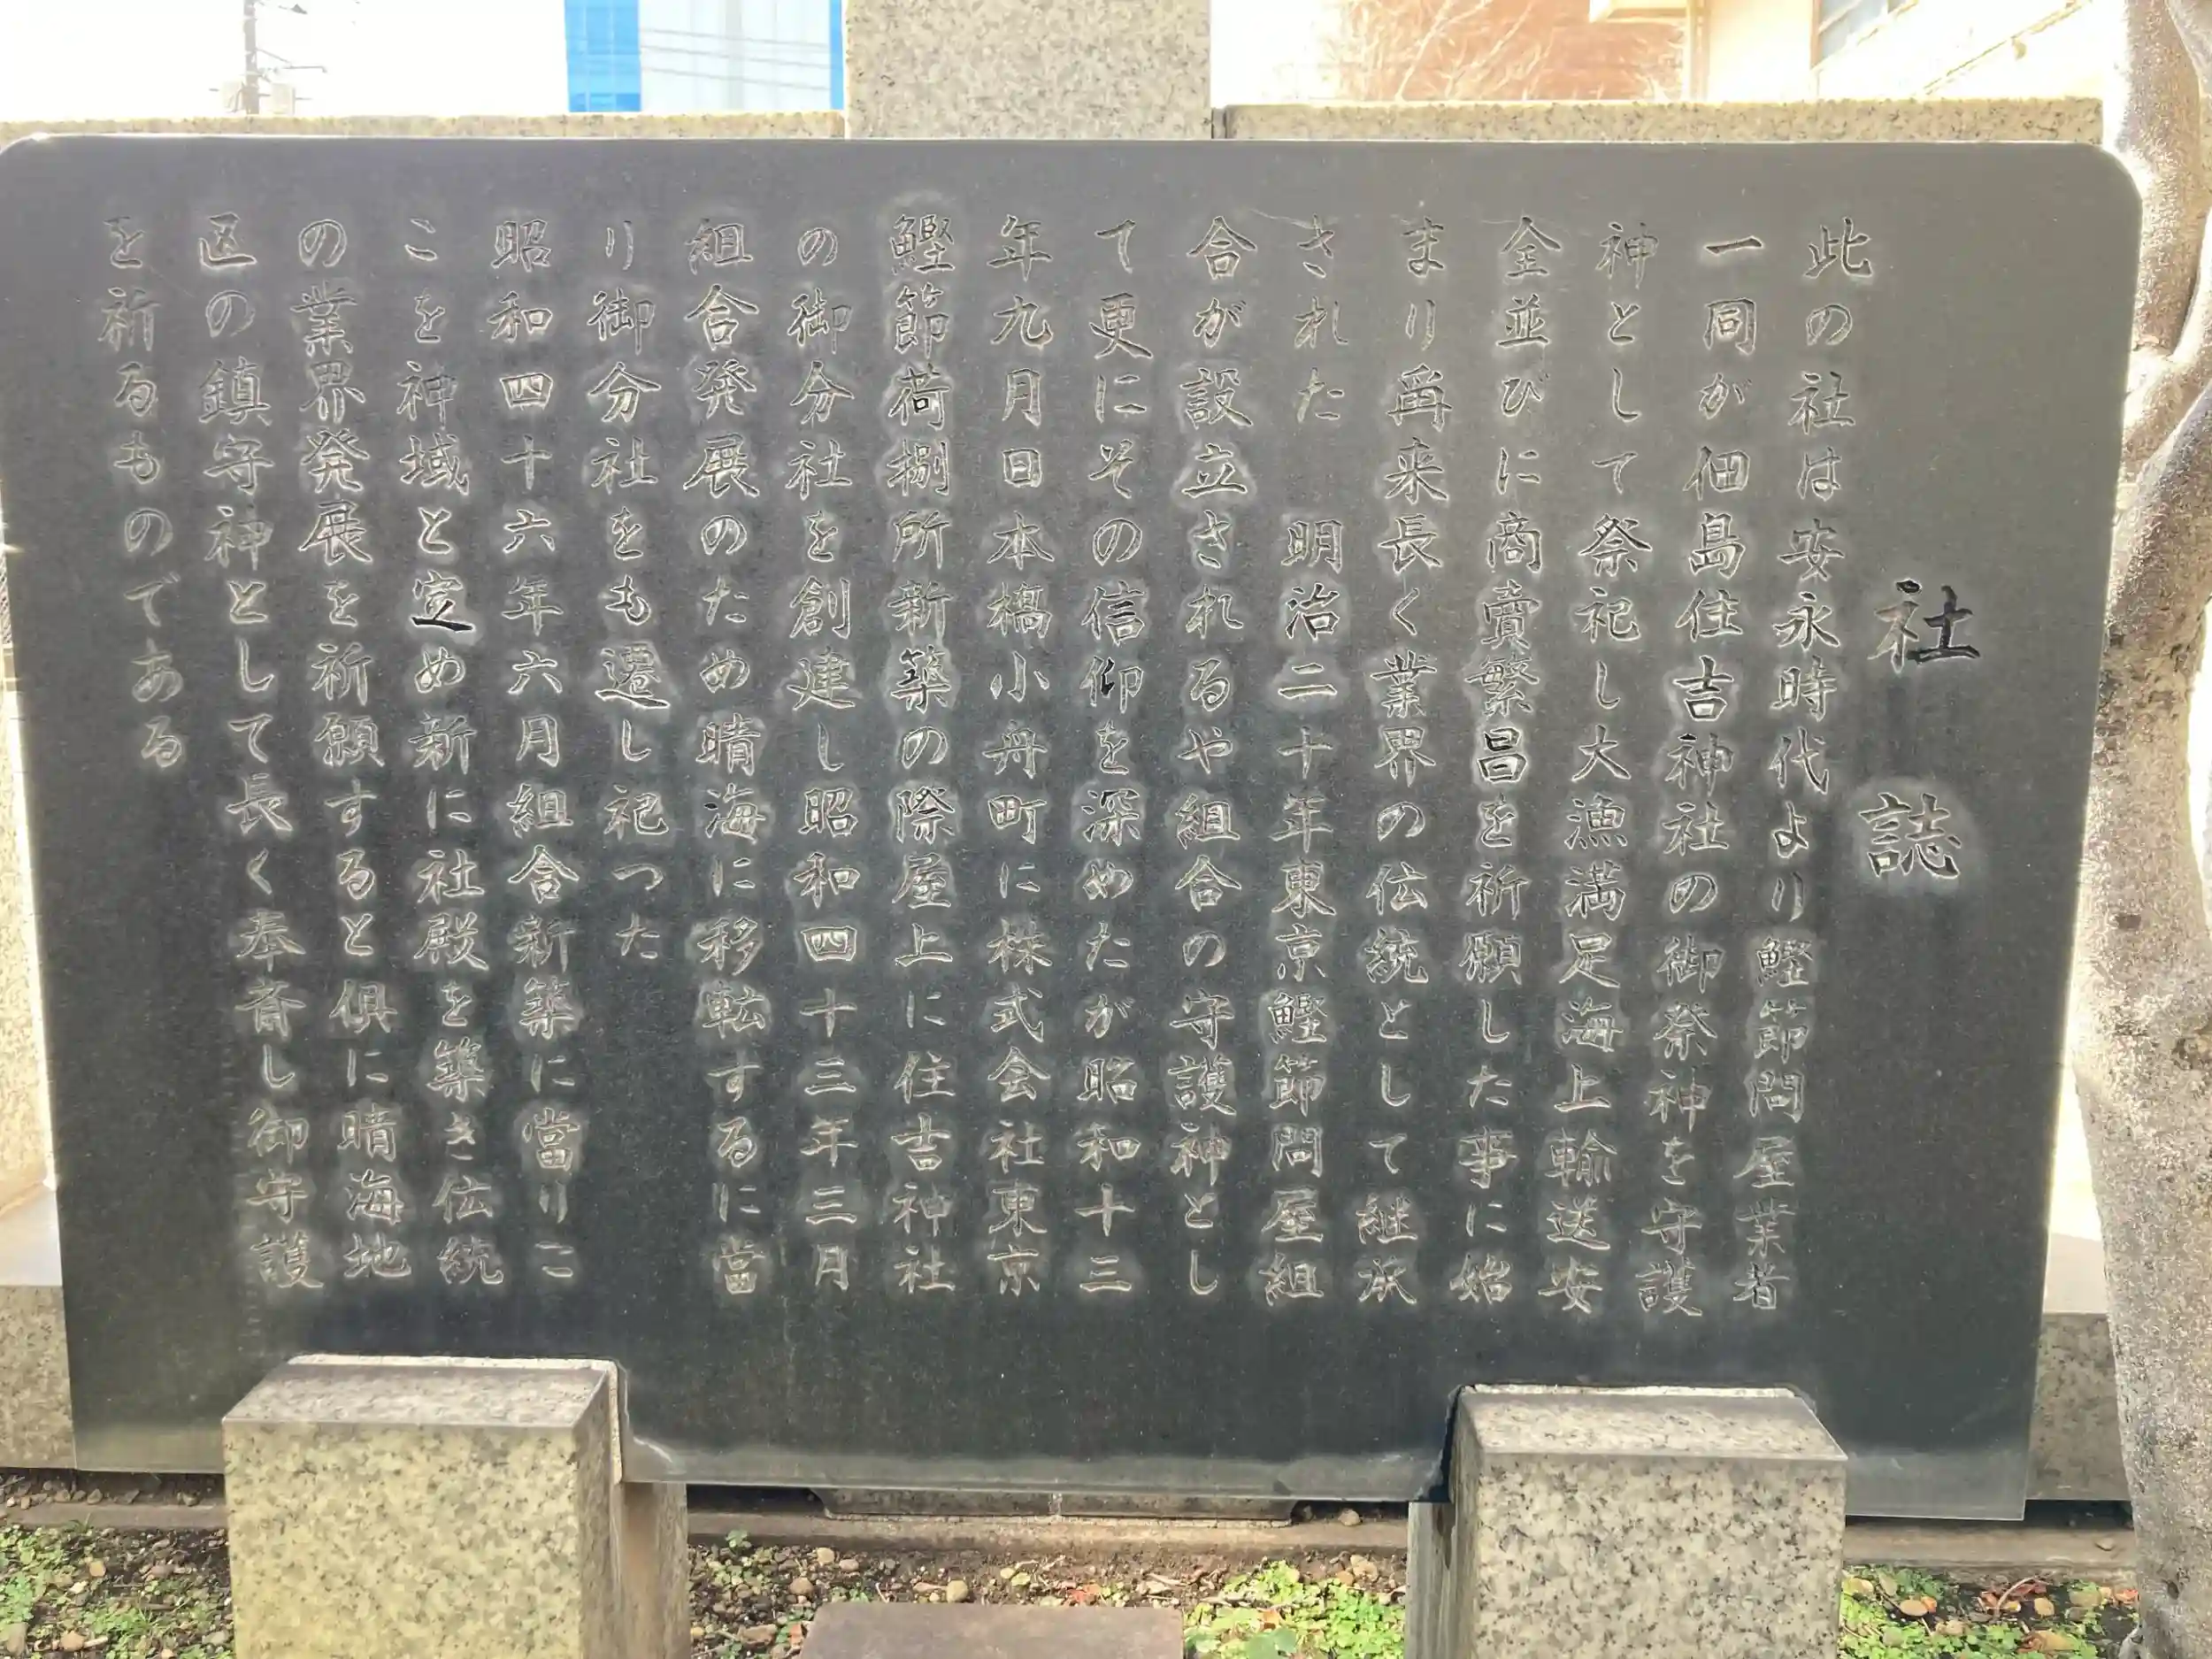 社誌
此の社は安永時代より鰹節問屋業者
一同が佃島住吉神社の御祭神を守護
神として祭祀し大漁満足海上輸送安
全並びに商賣繁昌を祈願した事に始
まり爾来長く業界の伝統として継承
された　明治二十年東京鰹節問屋組
合が設立されるや組合の守護神とし
て更にその信仰を深めたが昭和十三
年九月日本橋小舟町に株式会社東京
鰹節荷捌所新築の際屋上に住吉神社
の御分社を創建し昭和四十三年三月
組合発展のため晴海に移転するに當
り御分社をも遷し祀った
昭和四十六年六月組合新築に當りこ
こを神域と定め新に社殿を築き伝統
の業界発展を祈願すると倶に晴海地
区の鎮守神として長く奉斎し御守護
を祈るものである